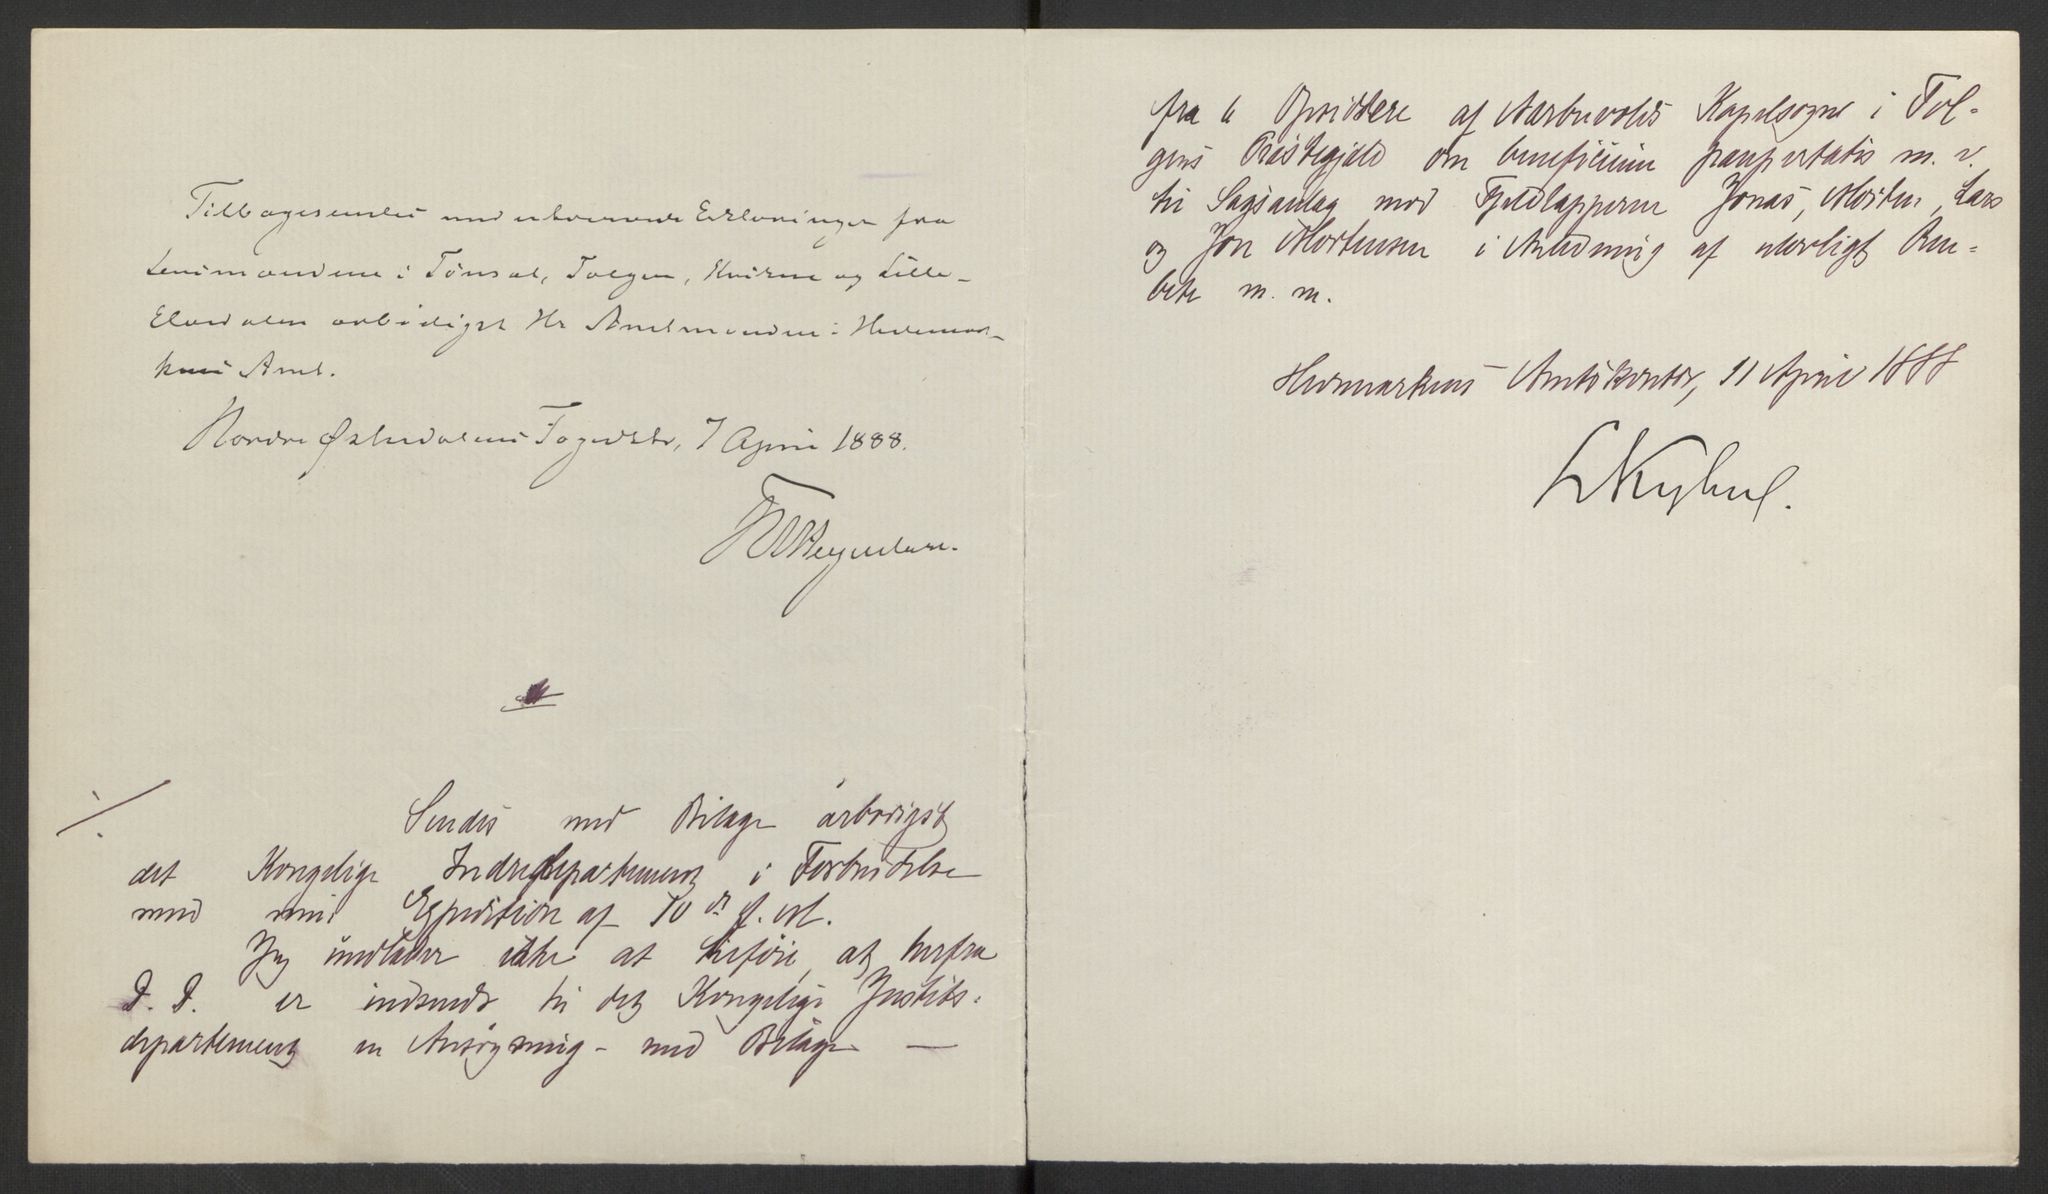 Tilbagesendes med indkomne Erklæringer fra
Lensmændene i Tønset, Tolgen, Kvikne og Lille-
Elvedalen ærbødigst Hr Amtmanden i Hedemar-
kens Amt.
Nordre Østerdalens Fogedktr, 7 April 1888.
./.
Sendes med Bilage ærbødigst
det Kongelige Indredepartement i Forbindelse
med min Expedition af 10de f. M.
Jeg undlader ikke at tilføie, at herfra
D. D. er indsendt til det Kongelige Justits-
departement en Ansøgning - med Bilage —
fra 6 Opsiddere af Narbuvolds Kapelsogn i Tol-
gens Præstegjeld om beneficium paupertatis m. v.
til Sagsanlæg mod Fjeldlapperne Jonas, Morten, Lars
og Jon Mortensen i Anledning af ulovligt Ren-
bete m. m.
Hedemarkens Amtskontor, 11 April 1888